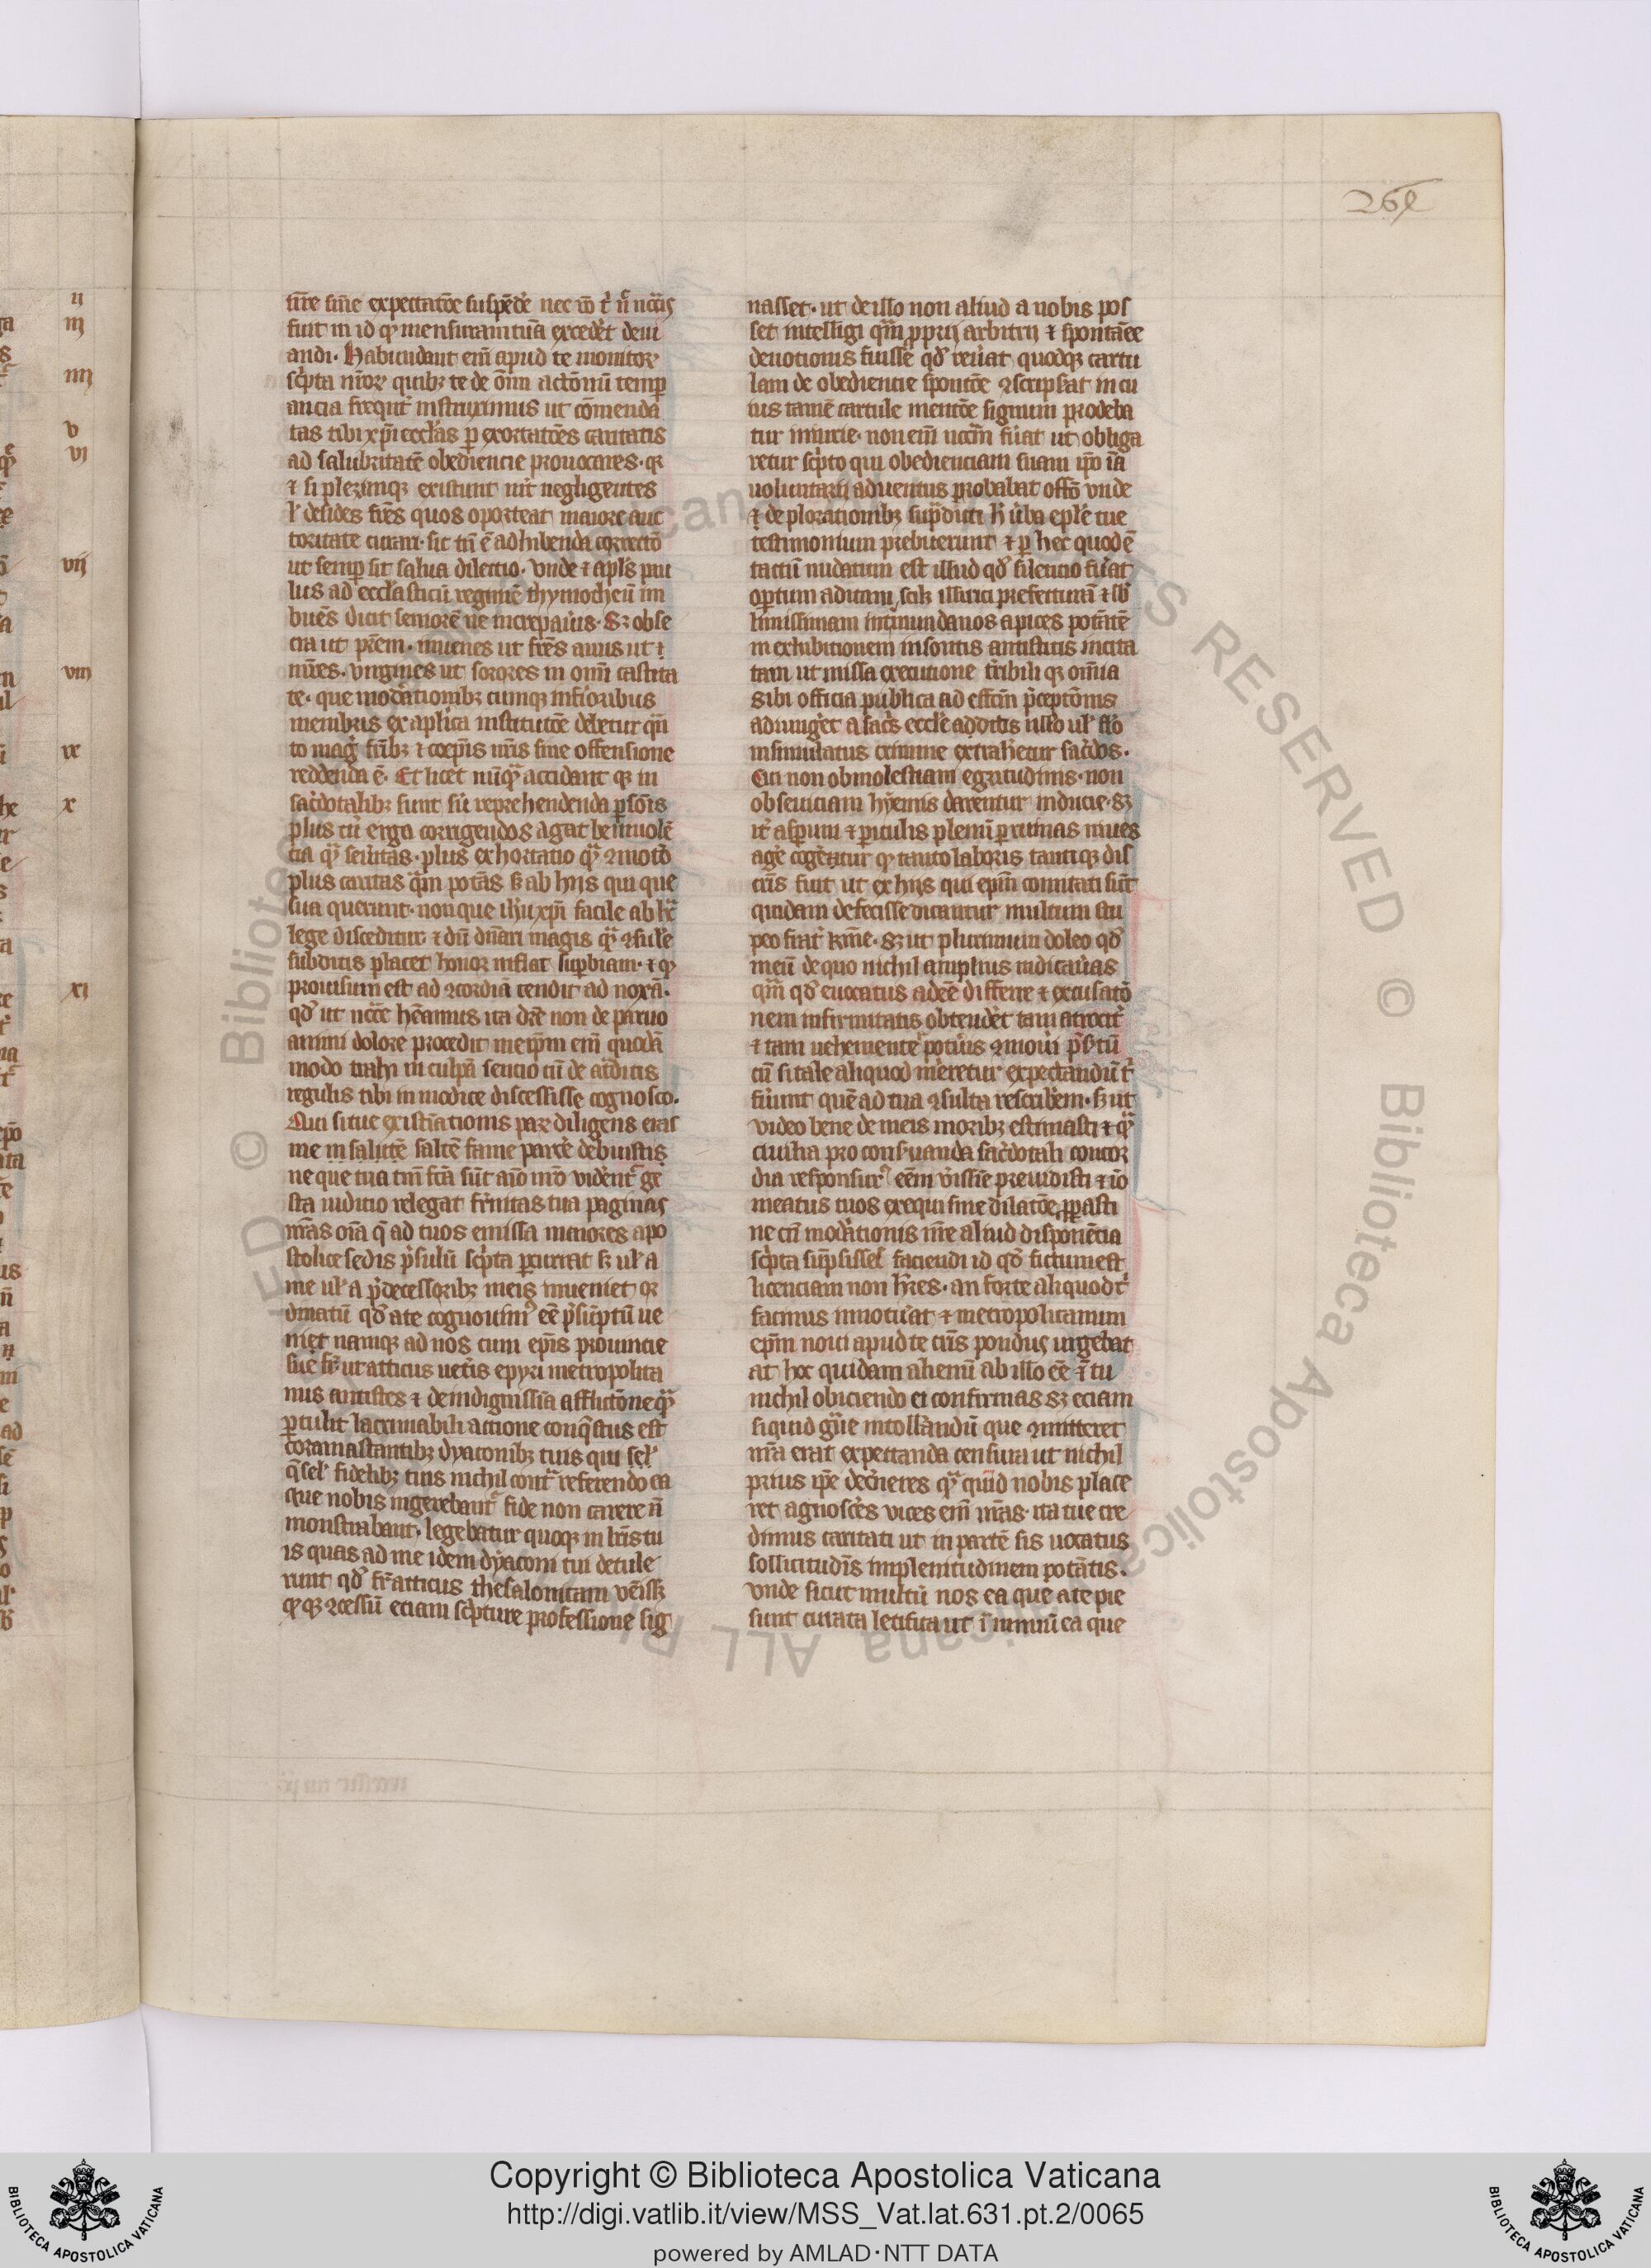 267
fuit in id qͥ mensuram tuã excedẽt deui
andi. Habundant em̃ apud te monitoꝝ
sc̾pta nr̃oꝝ quibꝫ te de õim actõnũ temꝑ
ancia frequt̾ instruximus ut cõmenda
tas tibi xp̃i eccl̃as ꝑ exortatões caritatis
ad salubritatẽ obediencie prouocares. qꝛ
⁊ si plerũqꝫ existunt int̾ negligentes
l̾ desides fr̃es quos oporteat maiore auc
toritate curari. sic tñ ẽ adhibenda correctio
ut semꝑ sit salua dilectio. vnde ⁊ apl̃s pau
lus ad eccl̃asticũ regimẽ thymotheũ im
buẽs dicit seniorẽ ne increpau̾is. Sꝫ obse
cra ut pr̃em. iuuenes ut fr̃es anus ut
mr̃es. virgines ut sorores in om̃i castita
te. que mod̾ationibꝫ cumqꝫ inferioribus
membris ex apl̃ica institutõe debetur qñ
to mag̾ fr̃ibꝫ ⁊ coep̃is nr̃is sine offensione
reddenda ẽ. Et licet
sac̾dotalibꝫ sunt reprehendenda ꝑsõis
plus tñ erga corrigendos agat beniuolẽ
cia qͣ̃ seu̾itas. plus exhortatio qͣ̃ ꝯmotio
plus caritas qͣ̃m potãs sꝫ ab hijs qui que
sua querunt. non que ih̾u xp̃i facile ab
lege disceditur ⁊ dũ dñari magis qͣ̃ ꝯsul̾e
subditis placet honor inflat suꝑbiam. ⁊ qͥ
prouisum est ad ꝯcordiã tendit ad noxã.
qd̾ ut hẽamus ita non de paruo
animi dolore procedit meip̃m em̃ quodã
modo trahi in culpã sencio cũ te a
regulis tibi immodice discessisse cognosco.
Qui si tue existĩationis parũ diligens eras
me in salutẽ saltẽ fame parcẽ debuisti
ne que tua tm̃ fc̃a sũt aĩo nr̃o vident̾ ge
sta iuditio relegat fr̃nitas tua paginas
nr̃as om̃ia q̃ ad tuos emissa maiores apo
stolice sedis p̾sulũ sc̾pta ꝑcurrat sꝫ ul̾ a
me ul̾ a p̾decessoribꝫ meis inueniet
qd̾ a te cognouim̾ eẽ p̾sũptũ ue
niet namqꝫ ad nos cum ep̃is prouincie
sue fr̃ ut atticus uet̾is epyri metropolita
nus antistes ⁊ de indignissĩa afflictõne qͣ̃
ꝑtulit lacrimabili actione conq̃stus est
coram astantibꝫ dyaconibꝫ tuis qui
fidelibꝫ tuis nichil contͣ referendo ea
que nobis ingerebant̾ fide non carere
monstrabant. legebatur quoqꝫ in lr̃is tu
is quas ad me idem dyaconi tui detule
runt qd̾ fr̃ atticus thesalonicam
ꝯcessũ eciam sc̾pture professione sig
nasset. ut de illo non aliud a nobis pos
set intelligi qͣ̃m ꝓprij arbitrij ⁊ spontãee
deuotionis fuisse qd̾ uen̾at quodqꝫ cartu
lam de obediencie sponsiõe ꝯscripserat in cu
ius tamẽ cartule mentõe signum prodeba
tur iniurie. non em̃ nec̃cm fu̾at ut obliga
retur sc̾pto qui obedienciam suam ip̃o iã
uoluntarij aduentus probabat offõ vnde
⁊ deplorationibꝫ sup̾dicti h̾ u̾ba ep̃l̃e tue
testimonium prebuerunt ⁊ ꝑ hec quod ẽ
tactũ nudatum est illud qd̾ silencio fu̾at
opertum aditam scilꝫ illirici prefecturã
limissimam int̾ mundanos apices potãtẽ
in exhibitionem insontis antistitis incita
tam ut missa execucione t̾ribili qꝫ om̃ia
sibi officia publica ad effc̃m p̾ceptõnis
adiunget a sac̾s eccl̃e aditis nullo ul̾
insimulatus crimine extraheretur sac̾dos.
Cui non ob molestiam egritudinis. non
ob seuiciam hyemis darentur inducie. sꝫ
it̾ asꝑum ⁊ ꝑiculis plenũ ꝑ uimas niues
age̾ cogeretur qͥ tanto laboris tantiqꝫ dis
cr̃is fuit ut ex hijs qui ep̃m comitati sũt
quidam defecisse dicantur multum stu
peo frat̾ kr̃me. sꝫ ut plurimum doleo qd̾
meũ de quo nichil amplius indicau̾as
qͣ̃m qd̾ euocatus adeẽ differre ⁊ excusatõ
nem infirmitatis obtendet̾ tam atrocit̾
⁊ tam uehement̾ potu̾is ꝯmoueri p̾sertĩ
cũ si tale aliquod meretur expectandũ t̾
fu̾unt quẽ ad tua ꝯsulta rescribe̾m. sꝫ ut
video bene de meis moribꝫ estimasti ⁊ qͣ̃
ciuilia pro conseruanda sac̾dotali concor
dia responsur̾ eẽm u̾issie preuidisti ⁊ iõ
meatus tuos exequi sine dilatõe ꝓꝑasti
ne cũ mod̾ationis nr̃e aliud disponẽcia
sc̾pta sũpsisses faciendi id qd̾ fictum est
licenciam non h̾res. an forte aliquod t̾
facinus innotu̾at ⁊ metropolitanum
ep̃m noui apud te crĩs pondus urgebat
at hoc quidam alienũ ab illo eẽ ⁊ tu
nichil obiciendo ei confirmas sꝫ eciam
siquid gͣue intollandũ que ꝯmitteret
nr̃a erat expectanda censura ut nichil
prius ip̃e dec̾neres qͣ̃ quid nobis place
ret agnosces vices em̃ nr̃as. ita tue cre
dimus caritati ut in partẽ sis uocatus
sollicitudĩs in plenitudinem potãtis.
vnde sicut multũ nos ea que a te pie
sunt curata letificant ĩ nimiũ ea que
ii
iii
iiii
v
vi
vij
viii
ix
x
xi
Copyright © Biblioteca Apostolica Vaticana
http://digi.vatlib.it/view/MSS_Vat.lat.631.pt.2/0065
powered by AMLAD·NTT DATA
BIBLIOTECA APOSTOLICA VATICANA
BIBLIOTECA APOSTOLICA VATICANA